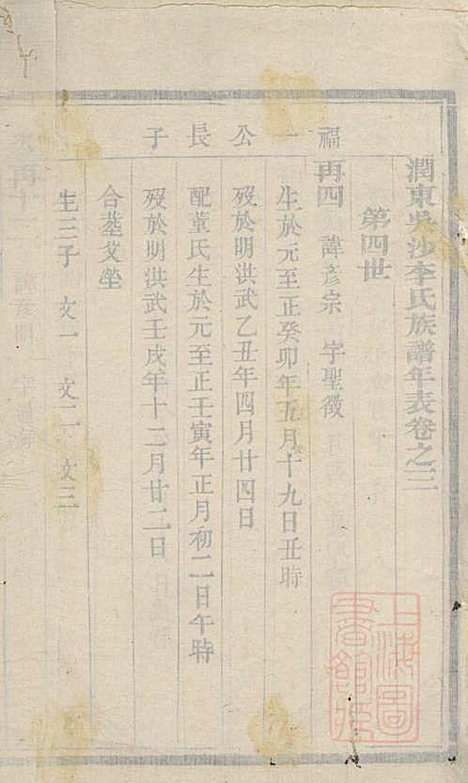 潤東吳沙李氏族譜年表卷之三
第四世
福一公長子
再四 諱彥宗 字聖徵
生於元至正癸卯年五月十九日丑時
歿於明洪武乙丑年四月廿四日
配董氏生於元至正壬寅年正月初二日午時
歿於明洪武壬戌年十二月廿二日
合墓艾塋
生三子 文一 文二 文三
上海圖書館藏